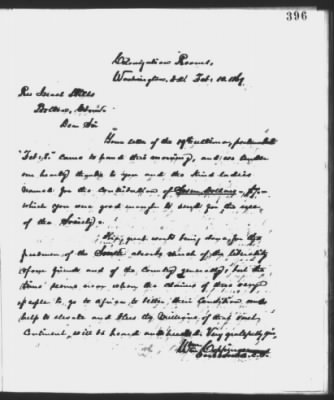 396
Colonization Rooms,
Washington, D.C. Feb. 10, 1869.
Rev Israel
Dear Sir
Your letter of the 19th ultimo, postmarked
"Feb. 8." came to hand this morning, and we tender
our hearty thanks to you and the kind ladies
named for the contribution of Seven Dollars - $7. -
which you were good enough to send for the use
of the Society.
great work being done for the
freedmen of the South absorbs much of the liberality
of our friends and of the Country generally; but the
time seems near when the claims of those very
people to go to Africa to better their Condition and
help to elevate and bless the Millions of that vast
Continent, will be heard and heeded. Very gratefully yrs,
Wm Coppinger